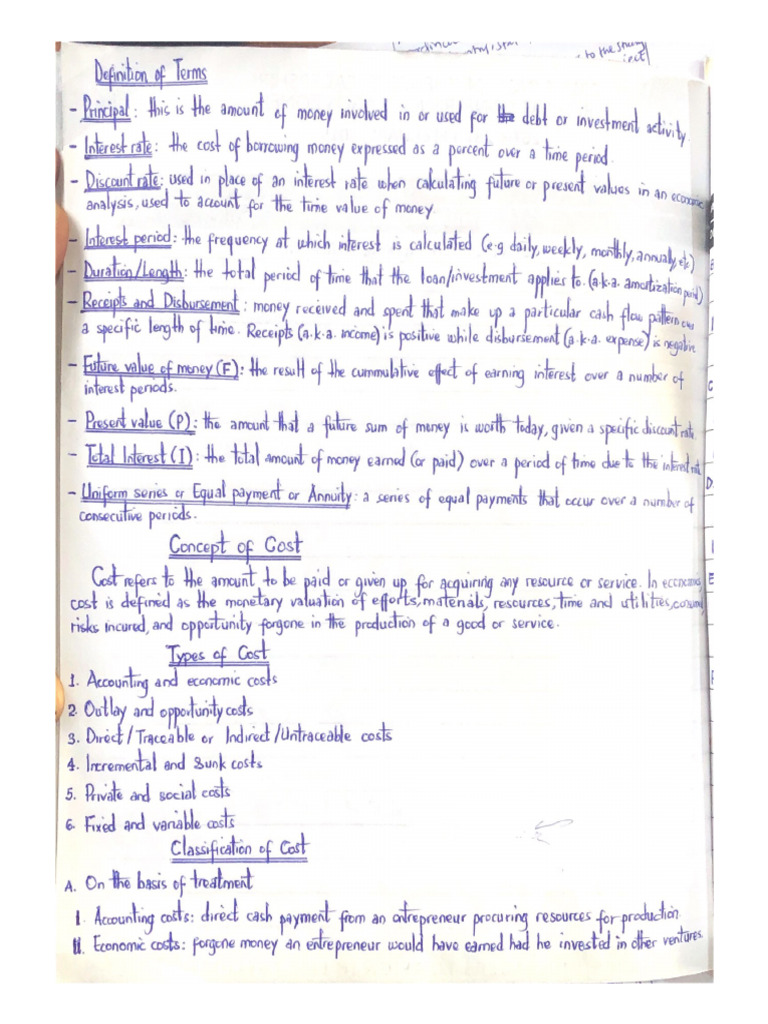 to the
Definition of Terms
- Principal: this is the amount of money involved in or used for the debt or investment activity.
- Interest rate: the cost of borrowing money expressed as a percent over a time period.
- Discount rate: used in place of an interest rate when calculating future or present values in an economic
analysis, used to account for the time value of money.
- Interest period: the frequency at which interest is calculated (e.g daily, weekly, monthly, annually, etc)
- Duration/Length: the total period of time that the loan/investment applies to. (a.k.a. amortization period)
- Receipts and Disbursement: money received and spent that make up a particular cash flow pattern over
a specific length of time. Receipts (a.k.a income) is positive while disbursement (a.k.a. expense) is negative
- Future value of money (F): the result of the cummulative effect of earning interest over a number of
interest periods.
- Present value (P): the amount that a future sum of money is worth today, given a specific discount rate.
- Total Interest (I): the total amount of money earned (or paid) over a period of time due to the interest rate
- Uniform series or Equal payment or Annuity: a series of equal payments that occur over a number of
consecutive periods.
Concept of Cost
Cost refers to the amount to be paid or given up for acquiring any resource or service. In economics
cost is defined as the monetary valuation of efforts, materials, resources, time and utilities, consumed,
risks incured, and opportunity forgone in the production of a good or service.
Types of Cost
1. Accounting and economic costs
2. Outlay and opportunity costs
3. Direct/Traceable or Indirect/Untraceable costs
4. Incremental and Sunk costs
5. Private and social costs
6. Fixed and variable costs
Classification of Cost
A. On the basis of treatment
I. Accounting costs: direct cash payment from an entrepreneur procuring resources for production.
II. Economic costs: forgone money an entrepreneur would have earned had he invested in other ventures.